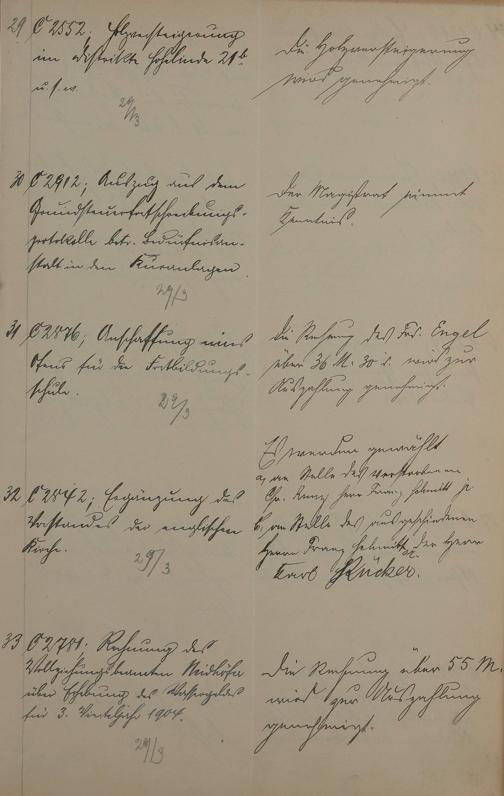 29 C 2552; Holzversteigerung
im Distrikte Hohelinde 21b
u. s. w.
29/3
Die Holzversteigerung
wird genehmigt.
30 C 2912; Auszug aus dem
Grundsteuerfortschreibungs-
protokolle betr. Bedürfnisan-
stalt in den Kuranlagen
29/3
Der Magistrat nimmt
Kenntnis.
31 C 2876; Anschaffung eines
Ofens für die Fortbildungs-
schule.
29/3
Die Rechnung des Frd. Engel
über 36 M. 30 d. wird zur
Auszahlung genehmigt.
32 C 2842; Ergänzung des
Vorstandes der englischen
Kirche.
29/3
Es werden gewählt
a, an Stelle des verstorbenen
Chr. Herr Franz Schmitt jr
b, an Stelle des ausgeschiedenen
Herrn Franz Schmitt der Herr
Karl Rücker.
33 C 2781; Rechnung des
Vollziehungsbeamten
über Erhebung des Wassergeldes
für 3. Vierteljahr 1904.
29/3
Die Rechnung über 55 M.
wird zur Auszahlung
genehmigt.